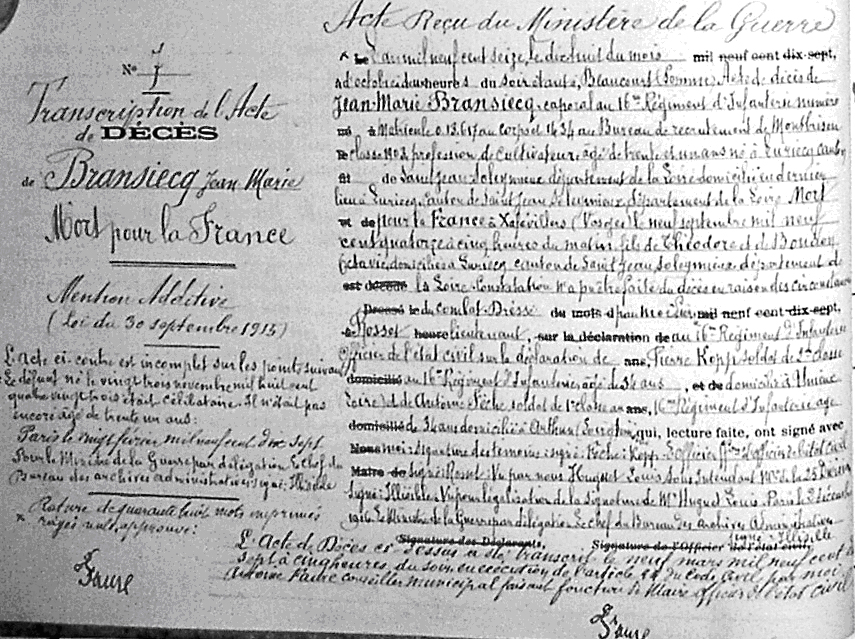 Acte Reçu du Ministère de la Guerre
N° 1
Transcription de l'Acte
de DÉCÈS
de Bransiecq Jean Marie
Mort pour la France
Mention Additive
(loi du 30 septembre 1915)
L'acte ci contre est incomplet sur les points suivants
Le défunt né le vingt trois novembre mil huit cent
quatre vingt trois était célibataire. Il n'était pas
encore âgé de trente un ans:
Paris le vingt février mil neuf cent dix sept
Pour le Ministre de la Guerre par délégation Le chef du
Bureau des archives administratives signé: Illisible
Rature de quarante huit mots imprimés
x rayés nuls, approuvé:
Faure
x Le L'an mil neuf cent seize, le dix huit du mois mil neuf cent dix-sept,
d'octobre du heures du soir étant à, Beaucourt (Somme) Acte de décès de
Jean-Marie Bransiecq, caporal au 16me Régiment d'Infanterie numéro
Matricule 0.13.617 au corps et 1434 au Bureau de recrutement de Montbrison
classe 1903 profession de cultivateur, âgé de trente et un ans né à Luriecq canton
de Saint Jean Soleymieux département de la Loire domicilié en dernier
lieu à Luriecq canton de Saint Jean Soleymieux, département de la Loire, Mort
pour la France à Xaffévillers (Vosges) le neuf septembre mil neuf
cent quatorze à cinq heures du matin, fils de Théodore et de
Octavie, domiciliés à Luriecq canton de Saint Jean Soleymieux département de
est décédé la Loire. Constatation n'a pu être faite du décès en raison des circonstances
Décès le du combat. Dressé du mois d par nous mil neuf cent dix-sept,
à Rosset heure lieutenant, sur la déclaration de au 16me Régiment d'Infanterie
Officier de l'état civil sur la déclaration de ans, Pierre Kopp soldat de 1re classe
domicilié au 16me Régiment d'Infanterie, âgé de 34 ans, et de domicilié à Unieux
(Loire) et de Antoine Fêche soldat de 1re classe au ans, 16me Régiment d'Infanterie âgé
domicilié de 34 ans domicilié à qui, lecture faite, ont signé avec
Nous moi: signature des témoins: signé: Fêche: Kopp: L'Officier d'officier de l'état Civil
Maire de signé: Rosset: Vu par nous Huguet Louis Sous Intendant
signé: Illisible: Vu pour légalisation de la signature de Mr Huguet Louis. Paris le 2 décembre
1916. Le Ministre de la Guerre par délégation Le Chef du Bureau des Archives Administratives
signé: Illisible
Signature des Déclarants, Signature de l'Officier de l'état civil,
L'Acte de Décès ci dessus a été transcrit le neuf mars mil neuf cent dix
sept à cinq heures du soir en exécution de l'article 94 du Code Civil par moi
Antoine Faure conseiller municipal faisant fonction de Maire officier de l'état civil
Faure